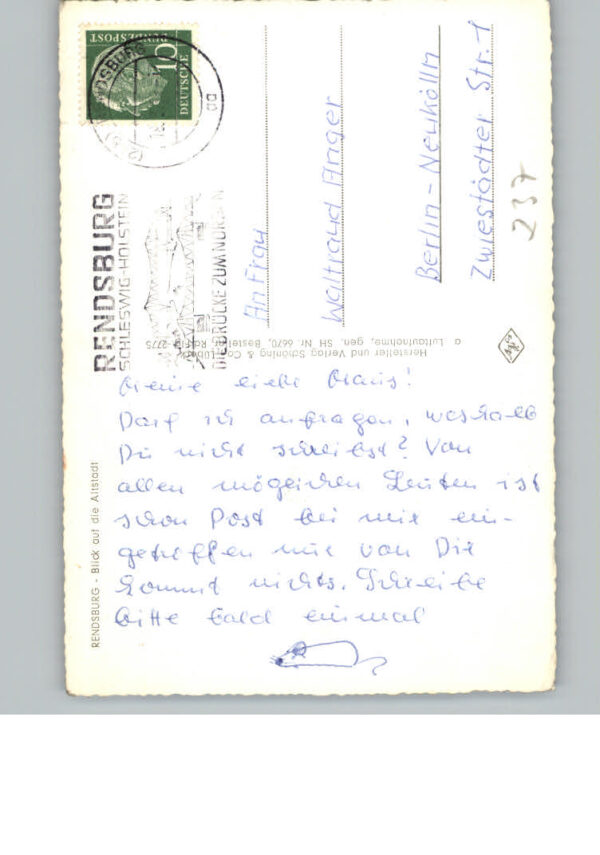 Meine liebe Maus!
Darf ich anfragen, weshalb
Du nicht schreibst? Von
allen möglichen Leuten ist
schon Post bei mir ein-
getroffen nur von Dir
kommt nichts. Schreibe
bitte bald einmal
An Frau
Waltraud Anger
Berlin-Neukölln
Zwiestädter Str. 1
237
RENDSBURG
SCHLESWIG-HOLSTEIN
DIE BRÜCKE ZUM NORDEN
RENDSBURG
aa
DEUTSCHE
BUNDESPOST
10
Hersteller und Verlag Schöning & Co., Lübeck
a Luftaufnahme, gen. SH Nr. 6670, Bestell-Nr. 2775
RENDSBURG - Blick auf die Altstadt